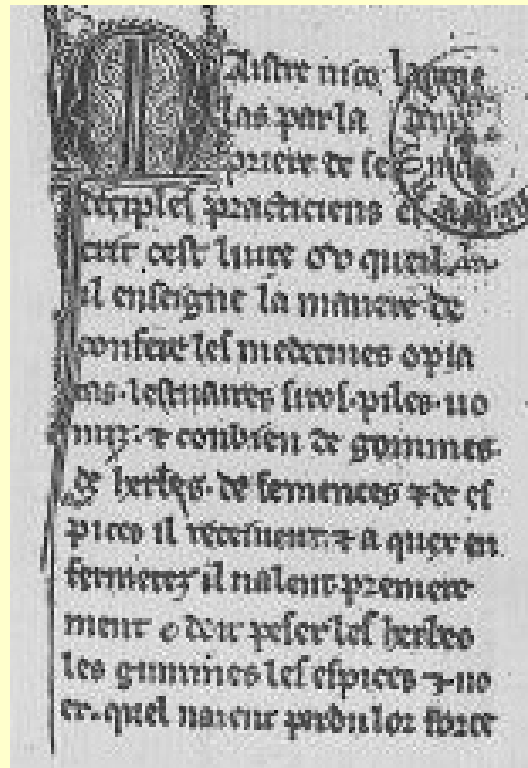 Maistre nico
las par la
priere de se
deciples practiciens
cest liure ou quel
il enseigne la maniere de
confere les medecines opia
tas. lestuaires siros. piles. uo
miz. ⁊ conbien de gommes.
de herbes. de semences ⁊ de es
pices il recoiuent. ⁊ a quex en
fermetez il ualent. premiere
ment o doit peser les herbes
les gummes les espices ⁊ uo
er. quel naient perdu lor force